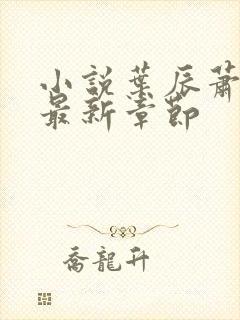 小説葉辰蕭
最新章節
喬龍升